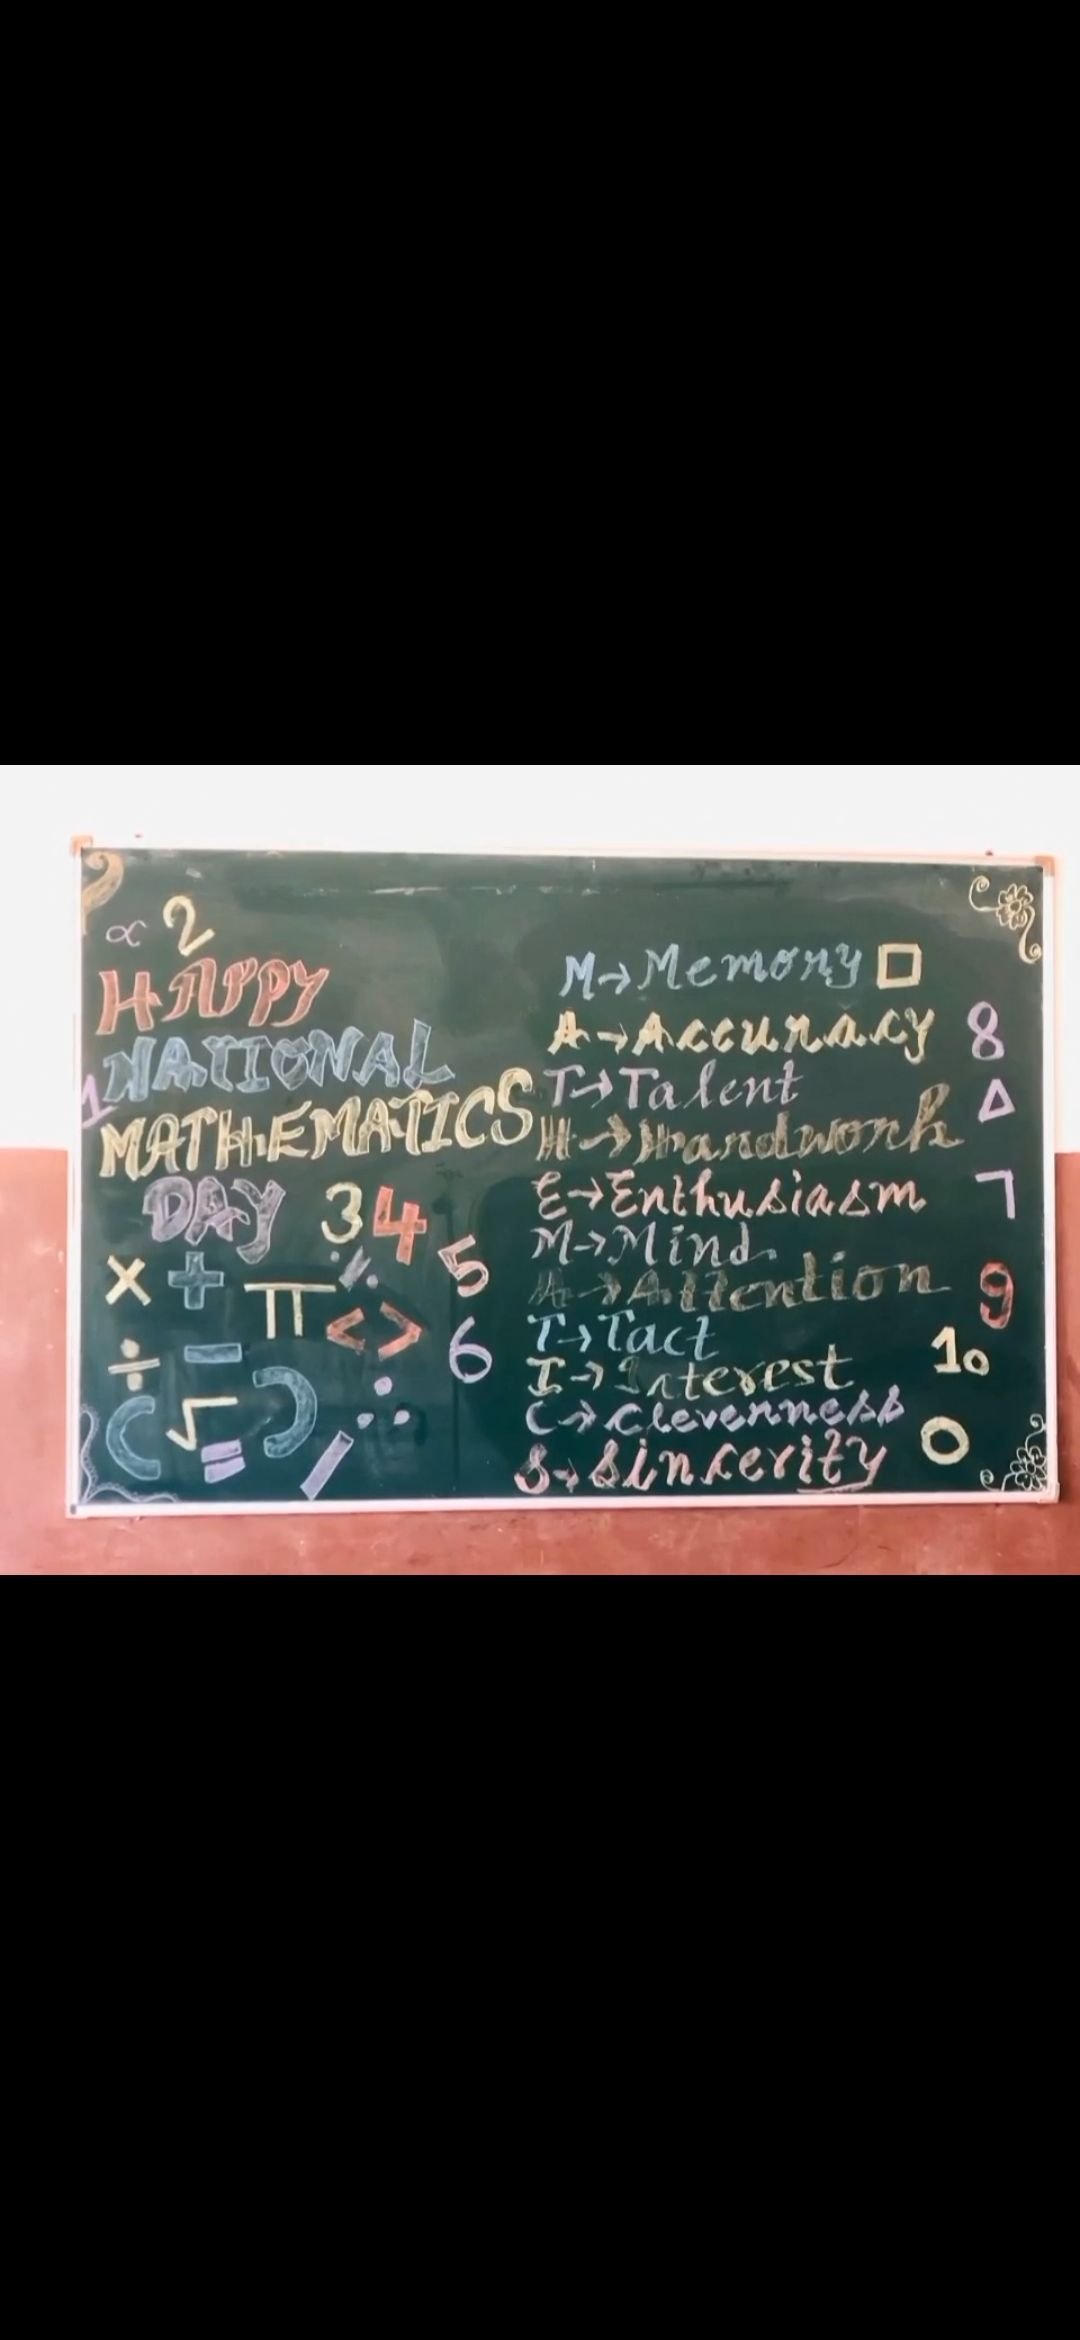 ∝ 2
HAPPY
NATIONAL
1
MATHEMATICS
DAY 3 4
× + π % 5
< >
÷ - 6
( √ ) ∴
= /
M→Memory □
A→Accuracy 8
T→Talent △
H→Hardwork
E→Enthusiasm 7
M→Mind
A→Attention 9
T→Tact
I→Interest 10
C→Cleverness
S→Sincerity ○